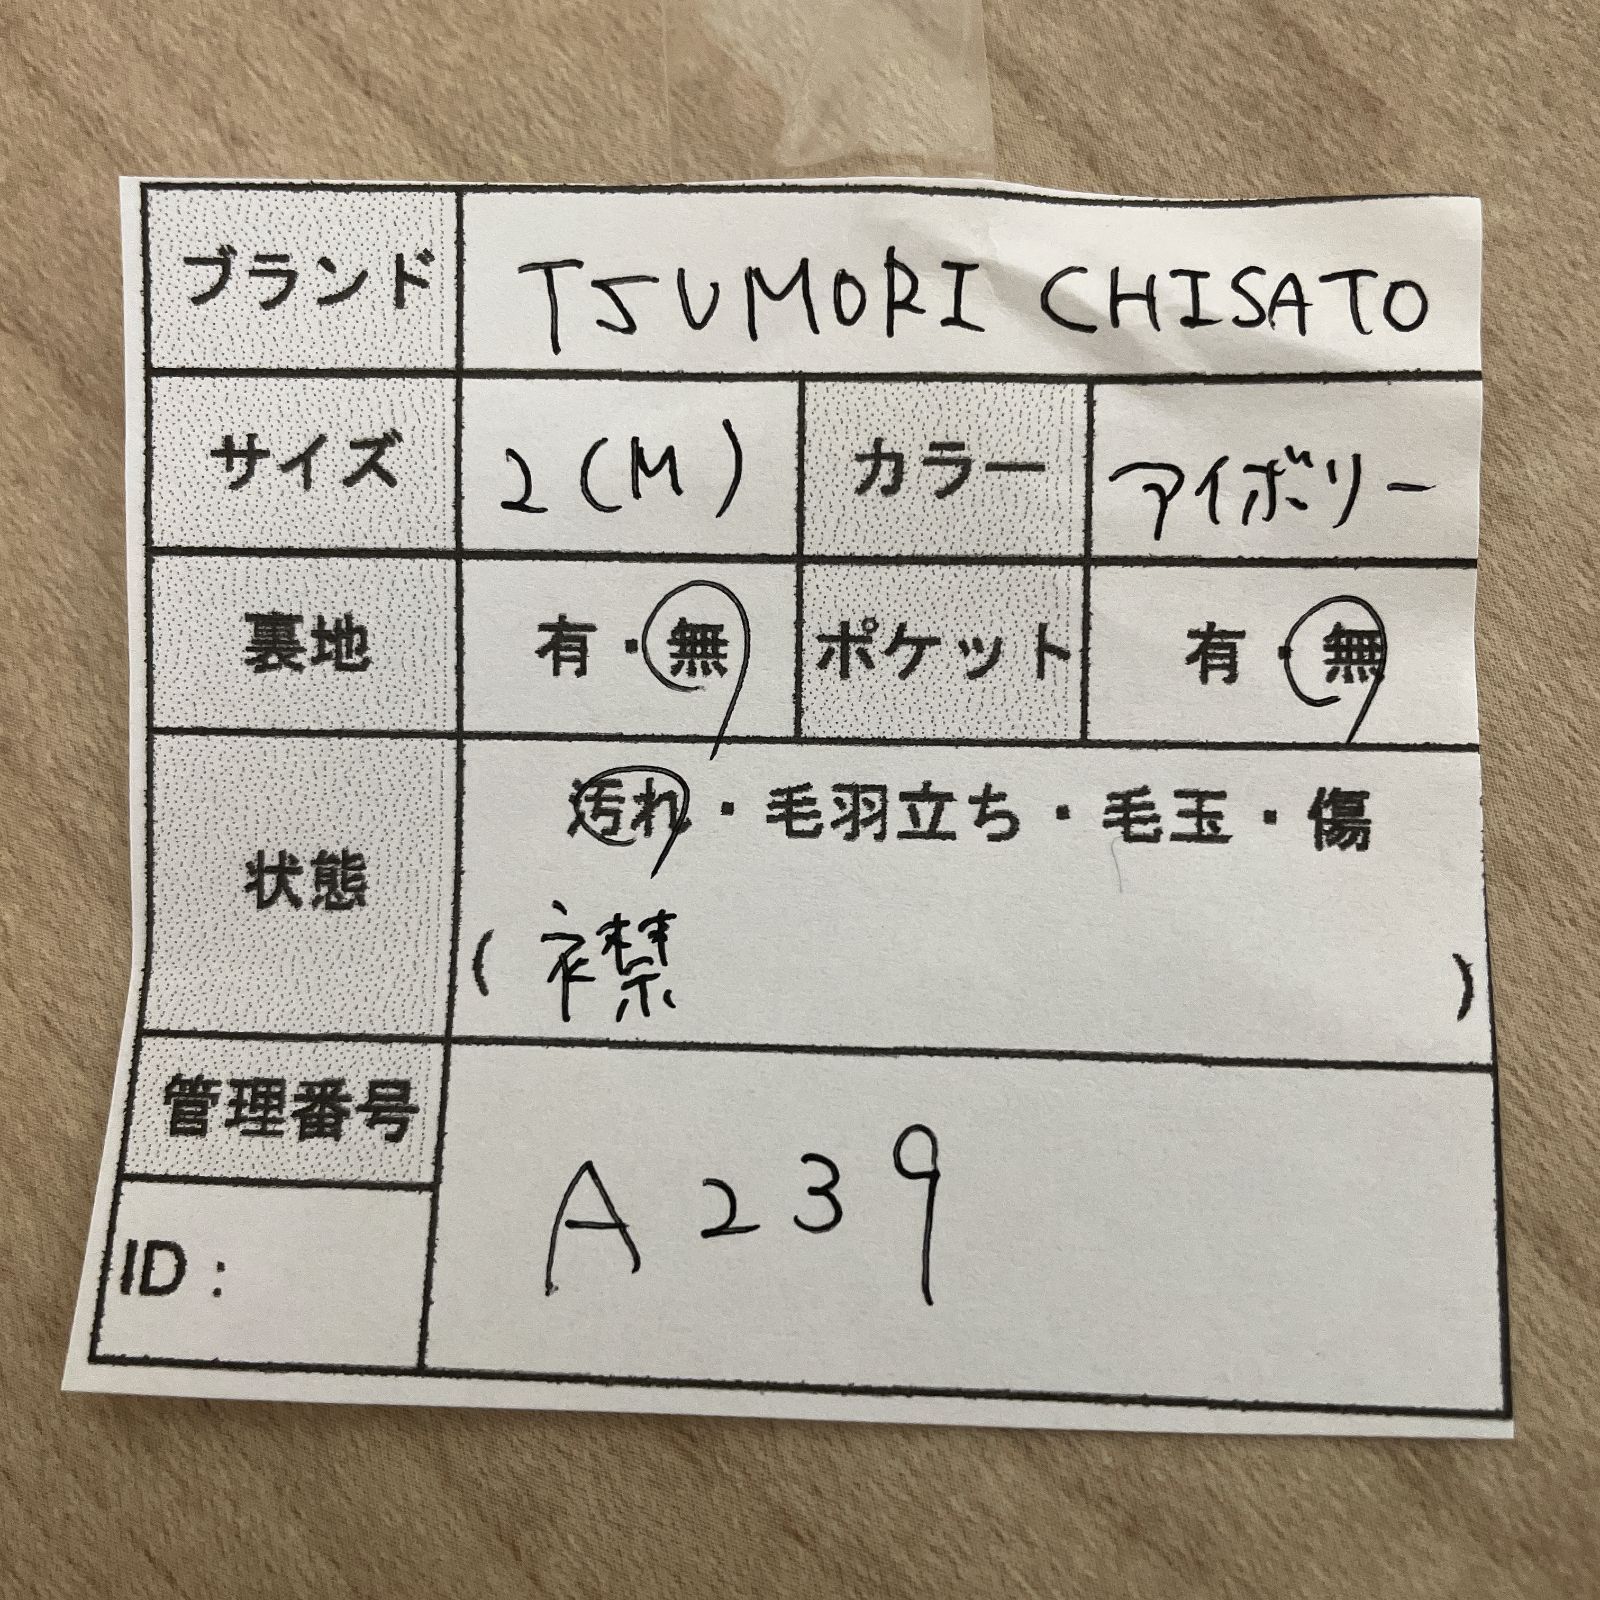 ブランド TSUMORI CHISATO
サイズ 2(M) カラー アイボリー
裏地 有・無 ポケット 有・無
汚れ・毛羽立ち・毛玉・傷
状態
(襟)
管理番号
A239
ID: